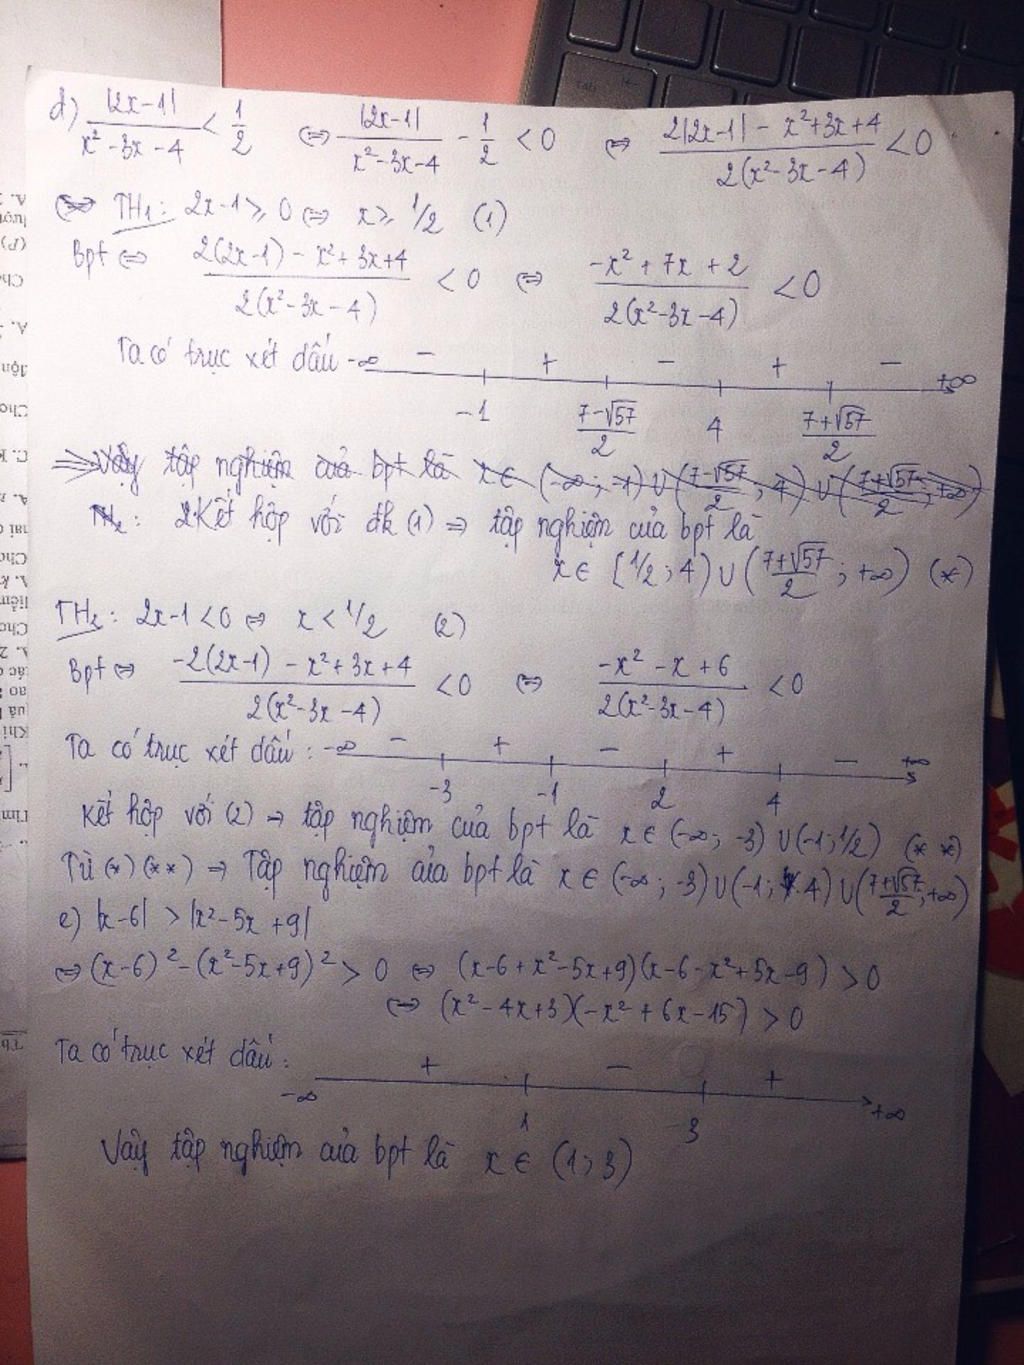 d) |2x-1| / (x² - 3x - 4) < 1/2 ⇔ |2x-1| / (x² - 3x - 4) - 1/2 < 0 ⇔ (2|2x-1| - x² + 3x + 4) / (2(x² - 3x - 4)) < 0
TH1: 2x-1 ≥ 0 ⇔ x ≥ 1/2 (1)
Bpt ⇔ (2(2x-1) - x² + 3x + 4) / (2(x² - 3x - 4)) < 0 ⇔ (-x² + 7x + 2) / (2(x² - 3x - 4)) < 0
Ta có trục xét dấu -∞ - + - + - +∞
-1 (7-√57)/2 4 (7+√57)/2
⇒ Vậy tập nghiệm của bpt là x ∈ (-∞; -1) ∪ ((7-√57)/2; 4) ∪ ((7+√57)/2; +∞)
: Kết hợp với đk (1) ⇒ tập nghiệm của bpt là
x ∈ [1/2; 4) ∪ ((7+√57)/2; +∞) (*)
TH2: 2x-1 < 0 ⇔ x < 1/2 (2)
Bpt ⇔ (-2(2x-1) - x² + 3x + 4) / (2(x² - 3x - 4)) < 0 ⇔ (-x² - x + 6) / (2(x² - 3x - 4)) < 0
Ta có trục xét dấu : -∞ - + - + - +∞
-3 -1 2 4
Kết hợp với (2) ⇒ tập nghiệm của bpt là x ∈ (-∞; -3) ∪ (-1; 1/2) (* *)
Từ (*) (* *) ⇒ Tập nghiệm của bpt là x ∈ (-∞; -3) ∪ (-1; 4) ∪ ((7+√57)/2; +∞)
e) |x-6| > |x² - 5x + 9|
⇔ (x-6)² - (x² - 5x + 9)² > 0 ⇔ (x-6+x²-5x+9)(x-6-x²+5x-9) > 0
⇔ (x² - 4x + 3)(-x² + 6x - 15) > 0
Ta có trục xét dấu :
-∞ + - + +∞
1 3
Vậy tập nghiệm của bpt là x ∈ (1; 3)